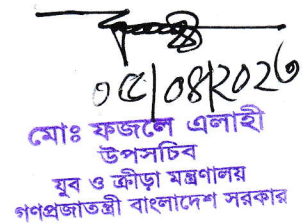 ০৫|০৪|২০২৩
মোঃ ফজলে এলাহী
উপসচিব
যুব ও ক্রীড়া মন্ত্রণালয়
গণপ্রজাতন্ত্রী বাংলাদেশ সরকার